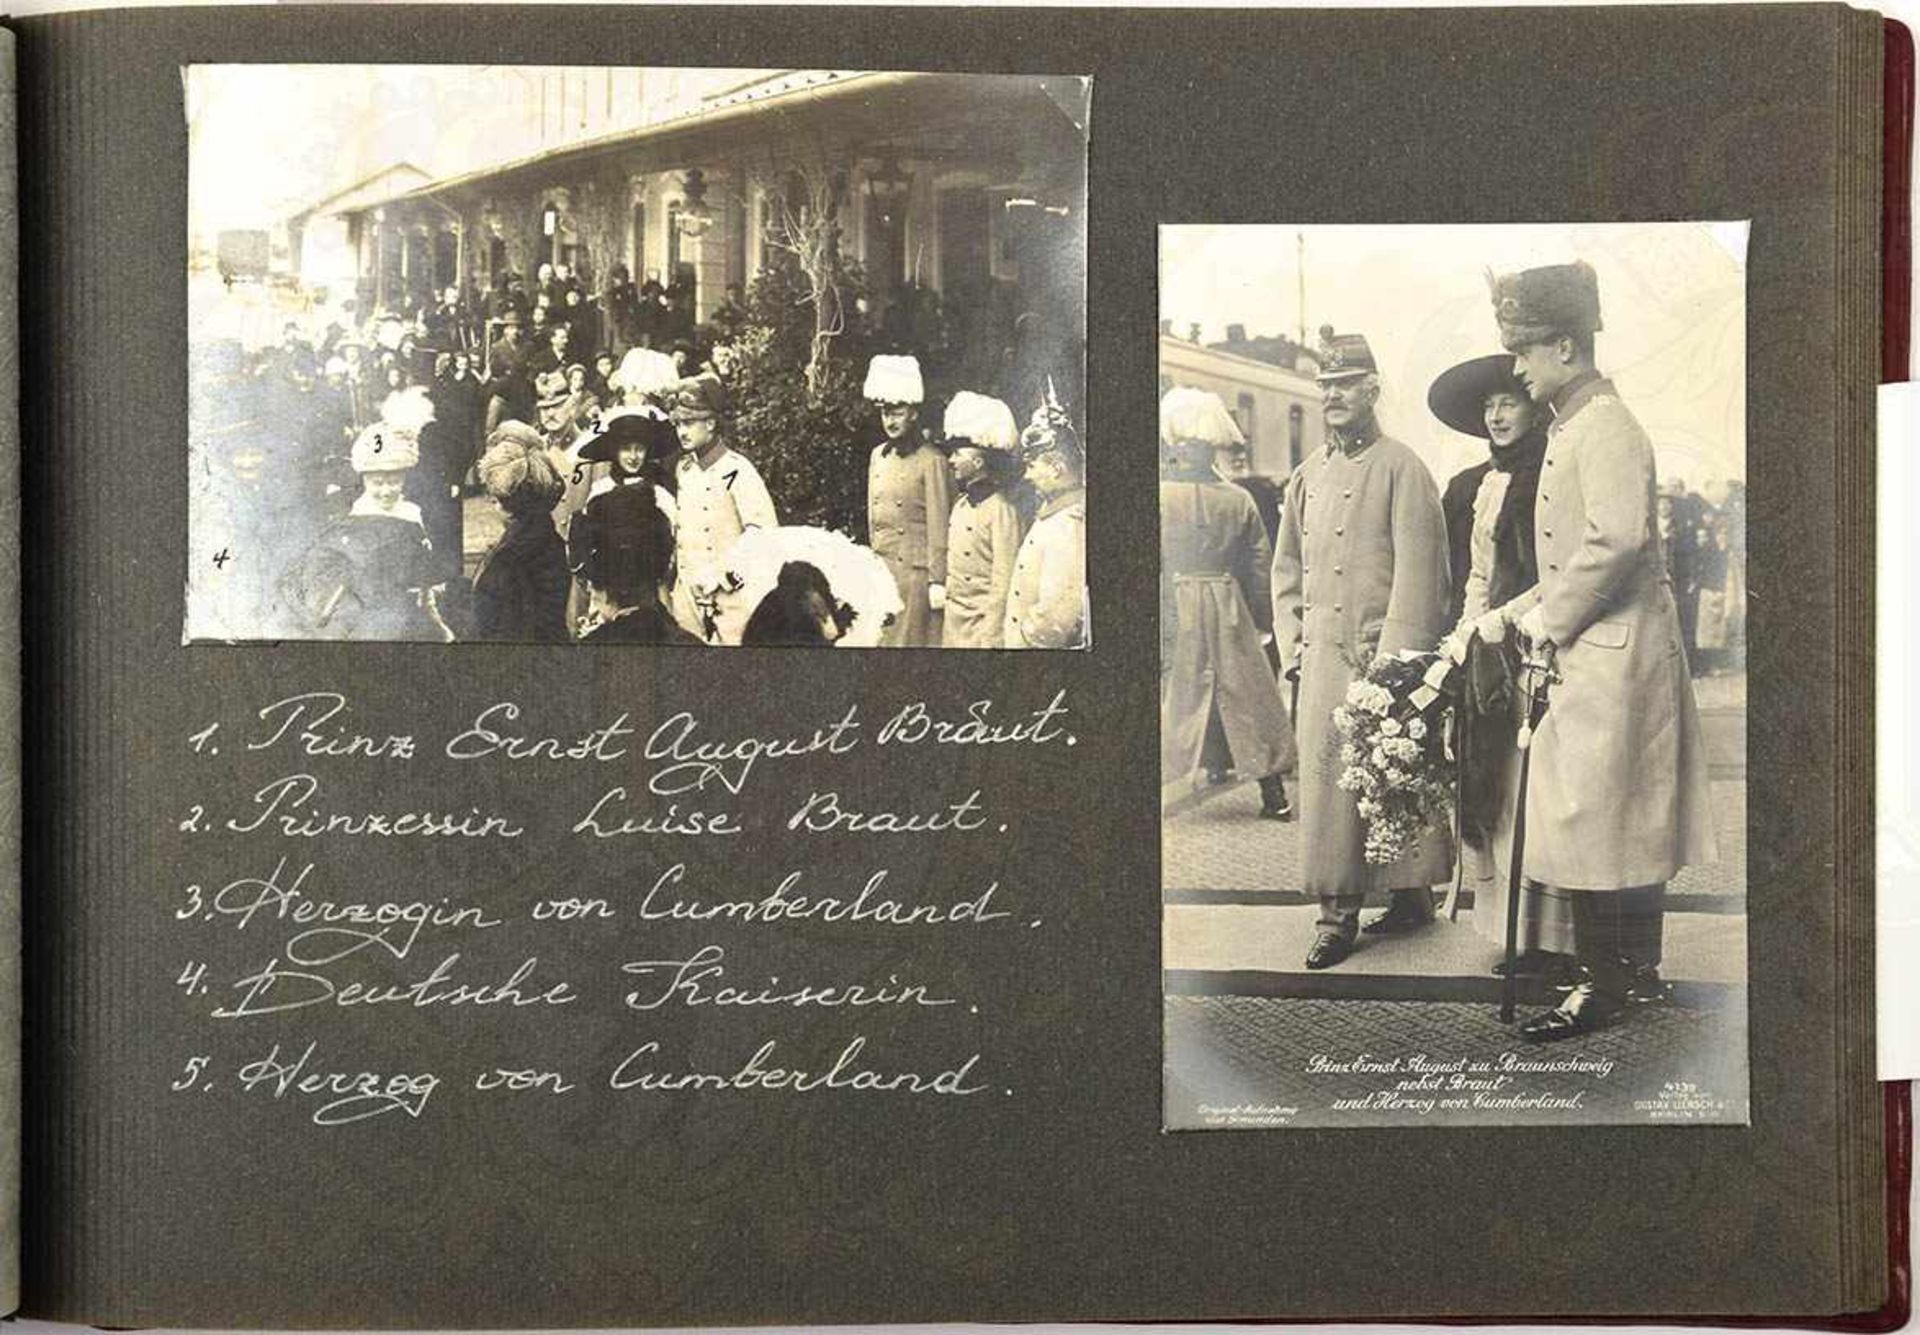 3
2
5
1
4
1. Prinz Ernst August Bräut.
2. Prinzessin Luise Braut.
3. Herzogin von Cumberland.
4. Deutsche Kaiserin.
5. Herzog von Cumberland.
Prinz Ernst August zu Braunschweig
nebst Braut
und Herzog von Cumberland.
Original-Aufnahme
aus Gmunden.
4139
Verlag von
GUSTAV LIERSCH & Co
BERLIN S.W.